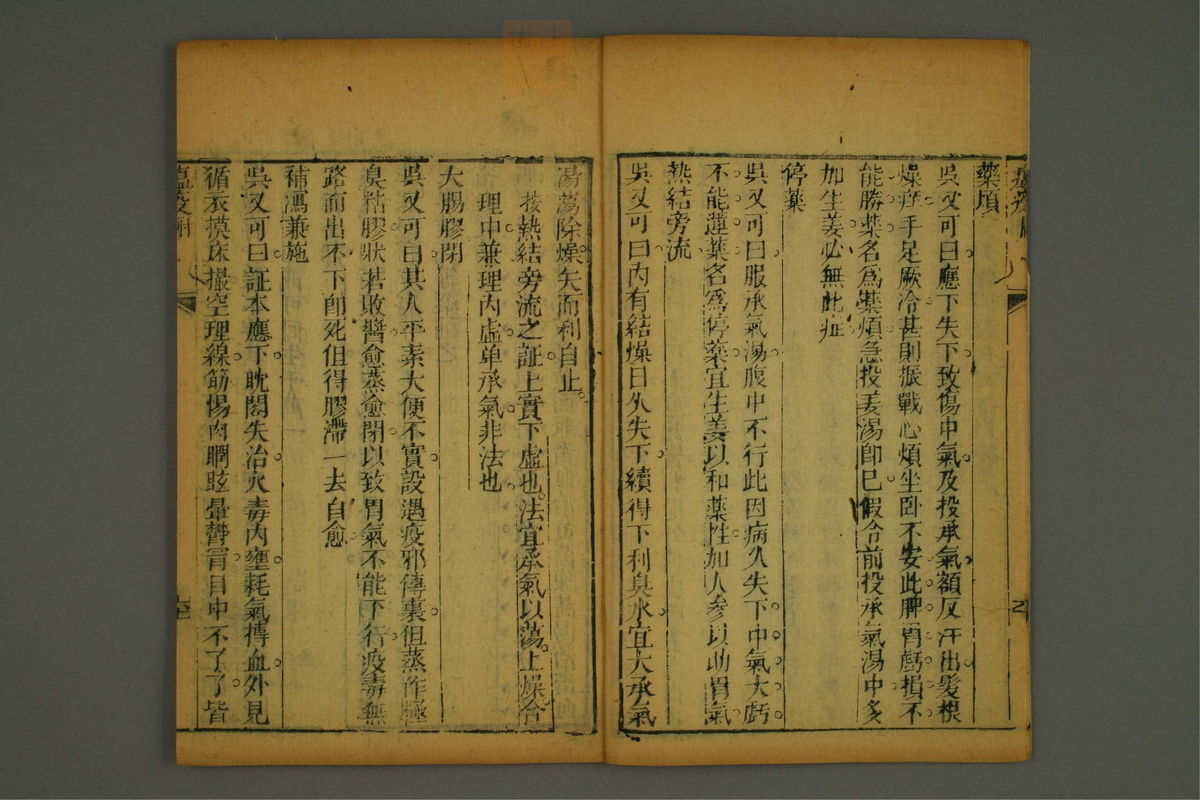 藥煩
吳又可曰應下失下致傷中氣及投承氣額反汗出髮根
燥痒手足厥冷甚則振戰心煩坐卧不安此脾胃虧損不
能勝藥名爲藥煩急投姜湯卽已假令前投承氣湯中多
加生姜必無此症
停藥
吳又可曰服承氣湯腹中不行此因病久失下中氣大虧
不能運藥名爲停藥宜生姜以和藥性加人參以助胃氣
熱結旁流
吳又可曰内有結燥日久失下續得下利臭水宜大承氣
湯蕩除燥矢而利自止
按熱結旁流之証上實下虛也法宜承氣以蕩上燥合
理中兼理内虛单承氣非法也
大腸膠閉
吳又可曰其人平素大便不實設遇疫邪傳裏但蒸作極
臭粘膠狀若敗醬愈蒸愈閉以致胃氣不能下行疫毒無
路而出不下卽死但得膠滯一去自愈
補瀉兼施
吳又可曰証本應下耽閣失治火毒内壅耗氣搏血外見
循衣摸床撮空理線筋惕肉瞤眩暈鬱冒目中不了了皆